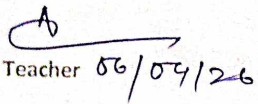 Teacher 06/04/26